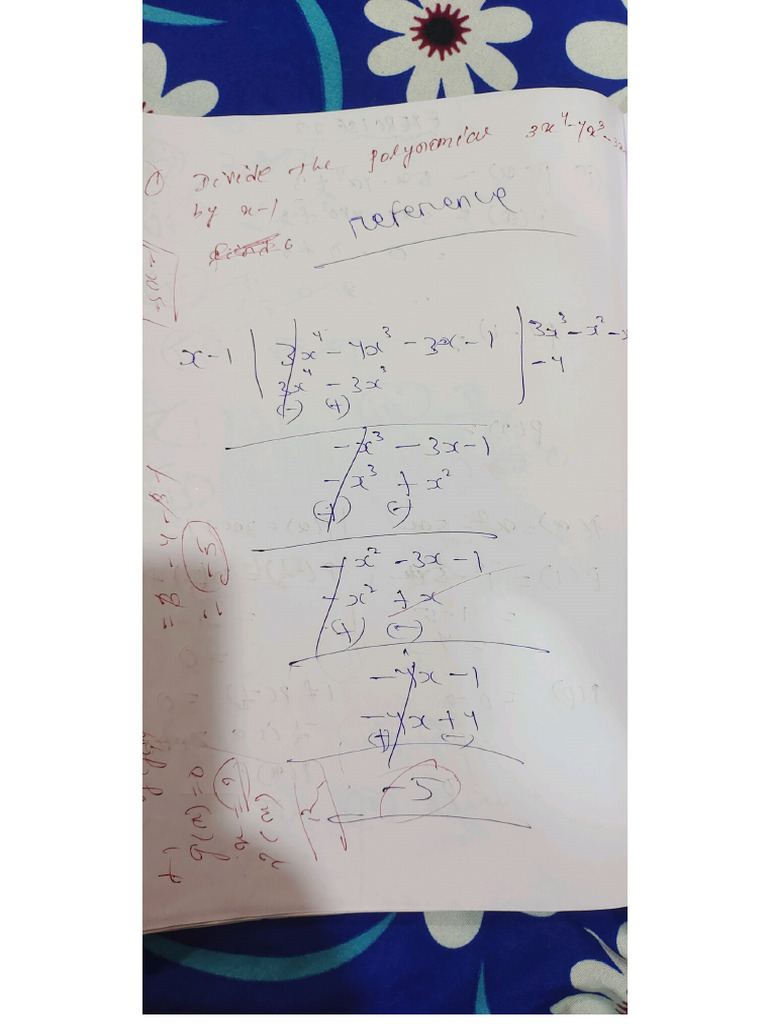 ① Divide the polynomial 3x⁴-4x³-3x
by x-1
reference
x-1 | 3x⁴ - 4x³ - 3x - 1 | 3x³ - x² - x
3x⁴ - 3x³ - 4
(-) (+)
- x³ - 3x - 1
- x³ + x²
(+) (-)
- x² - 3x - 1
- x² + x
(+) (-)
- 4x - 1
- 4x + 4
(+) (-)
- 5
= 3 - 4 - 3 - 1
= -5